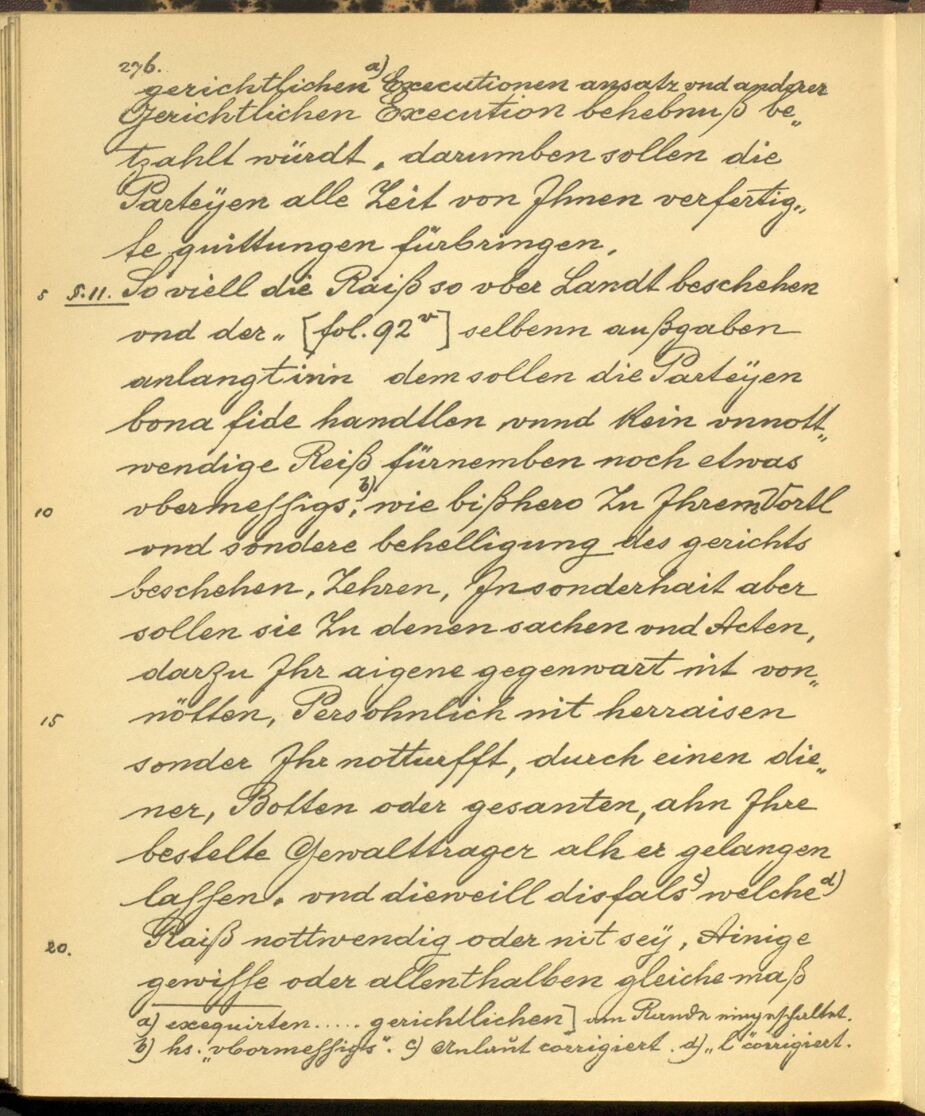 276.
gerichtlichen a) Executionen ansatz vnd anderer
Gerichtlichen Execution behebnuß be„
tzahlt würdt, darumben sollen die
Parteÿen alle Zeit von Jhnen verfertig„
te quittungen fürbringen.
5 §.11. So viell die Raiß so vber Landt beschehen
vnd der„ [fol. 92v] selbenn außgaben
anlangt inn dem sollen die Parteÿen
bona fide handtlen, vnnd kein vnnott„
wendige Reiß fürnemben noch etwas
10 vbermessigs, b) wie bißhero Zu Jhrem Vortl
vnd sondere behelligung des gerichts
beschehen, Zehren, Jnsonderhait aber
sollen sie Zu denen sachen vnd Acten,
darzu Jhr aigene gegenwart nit von„
15 nötten, Persohnlich nit herraisen
sonder Jhr notturfft, durch einen die„
ner, Botten oder gesanten, ahn Jhre
bestelte Gewalttrager alher gelangen
lassen. vnd dieweill disfals c) welche d)
20. Raiß nottwendig oder nit seÿ, Ainige
gewisse oder allenthalben gleiche maß
a) exequirten ..... gerichtlichen] am Rande eingeschaltet.
b) hs. „vbormessigs“. c) Anlaut corrigiert. d) „l“ corrigiert.